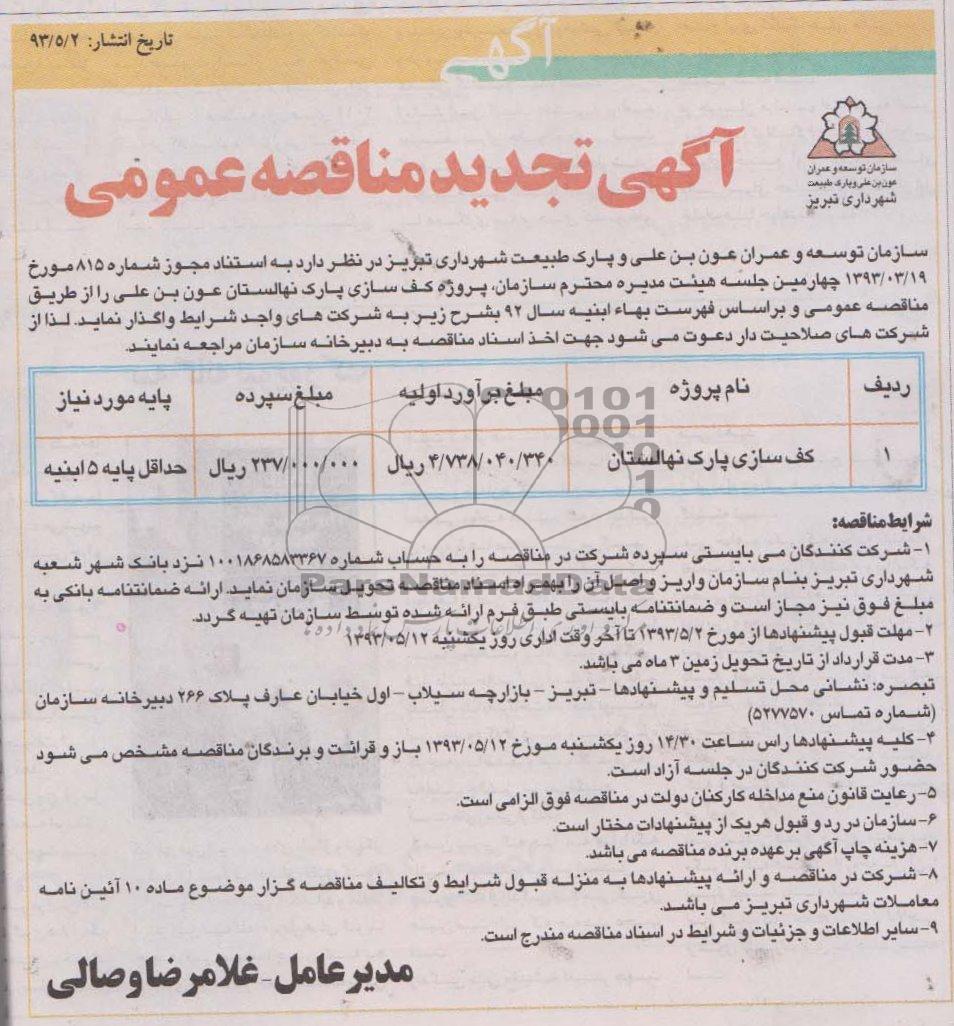 تاریخ انتشار: ۹۳/۵/۲
آگهی
سازمان توسعه و عمران
عون بن علی و پارک طبیعت
شهرداری تبریز
آگهی تجدید مناقصه عمومی
سازمان توسعه و عمران عون بن علی و پارک طبیعت شهرداری تبریز در نظر دارد به استناد مجوز شماره ۸۱۵ مورخ
۱۳۹۳/۰۳/۱۹ چهارمین جلسه هیئت مدیره محترم سازمان، پروژه کف سازی پارک نهالستان عون بن علی را از طریق
مناقصه عمومی و براساس فهرست بهاء ابنیه سال ۹۲ بشرح زیر به شرکت های واجد شرایط واگذار نماید. لذا از
شرکت های صلاحیت دار دعوت می شود جهت اخذ اسناد مناقصه به دبیرخانه سازمان مراجعه نمایند.
ردیف نام پروژه مبلغ برآورد اولیه مبلغ سپرده پایه مورد نیاز
۱ کف سازی پارک نهالستان ۴/۷۳۸/۰۴۰/۳۴۰ ریال ۲۳۷/۰۰۰/۰۰۰ ریال حداقل پایه ۵ ابنیه
شرایط مناقصه:
۱- شرکت کنندگان می بایستی سپرده شرکت در مناقصه را به حساب شماره ۱۰۰۱۸۶۸۵۸۳۳۶۷ نزد بانک شهر شعبه
شهرداری تبریز بنام سازمان واریز و اصل آن را بهمراه اسناد مناقصه تحویل سازمان نماید. ارائه ضمانتنامه بانکی به
مبلغ فوق نیز مجاز است و ضمانتنامه بایستی طبق فرم ارائه شده توسط سازمان تهیه گردد.
۲- مهلت قبول پیشنهادها از مورخ ۱۳۹۳/۵/۲ تا آخر وقت اداری روز یکشنبه ۱۳۹۳/۰۵/۱۲
۳- مدت قرارداد از تاریخ تحویل زمین ۳ ماه می باشد.
تبصره: نشانی محل تسلیم و پیشنهادها - تبریز - بازارچه سیلاب - اول خیابان عارف پلاک ۲۶۶ دبیرخانه سازمان
(شماره تماس ۵۲۷۷۵۷۰)
۴- کلیه پیشنهادها راس ساعت ۱۴/۳۰ روز یکشنبه مورخ ۱۳۹۳/۰۵/۱۲ باز و قرائت و برندگان مناقصه مشخص می شود
حضور شرکت کنندگان در جلسه آزاد است.
۵- رعایت قانون منع مداخله کارکنان دولت در مناقصه فوق الزامی است.
۶- سازمان در رد و قبول هریک از پیشنهادات مختار است.
۷- هزینه چاپ آگهی بر عهده برنده مناقصه می باشد.
۸- شرکت در مناقصه و ارائه پیشنهادها به منزله قبول شرایط و تکالیف مناقصه گزار موضوع ماده ۱۰ آئین نامه
معاملات شهرداری تبریز می باشد.
۹- سایر اطلاعات و جزئیات و شرایط در اسناد مناقصه مندرج است.
مدیر عامل - غلامرضا وصالی